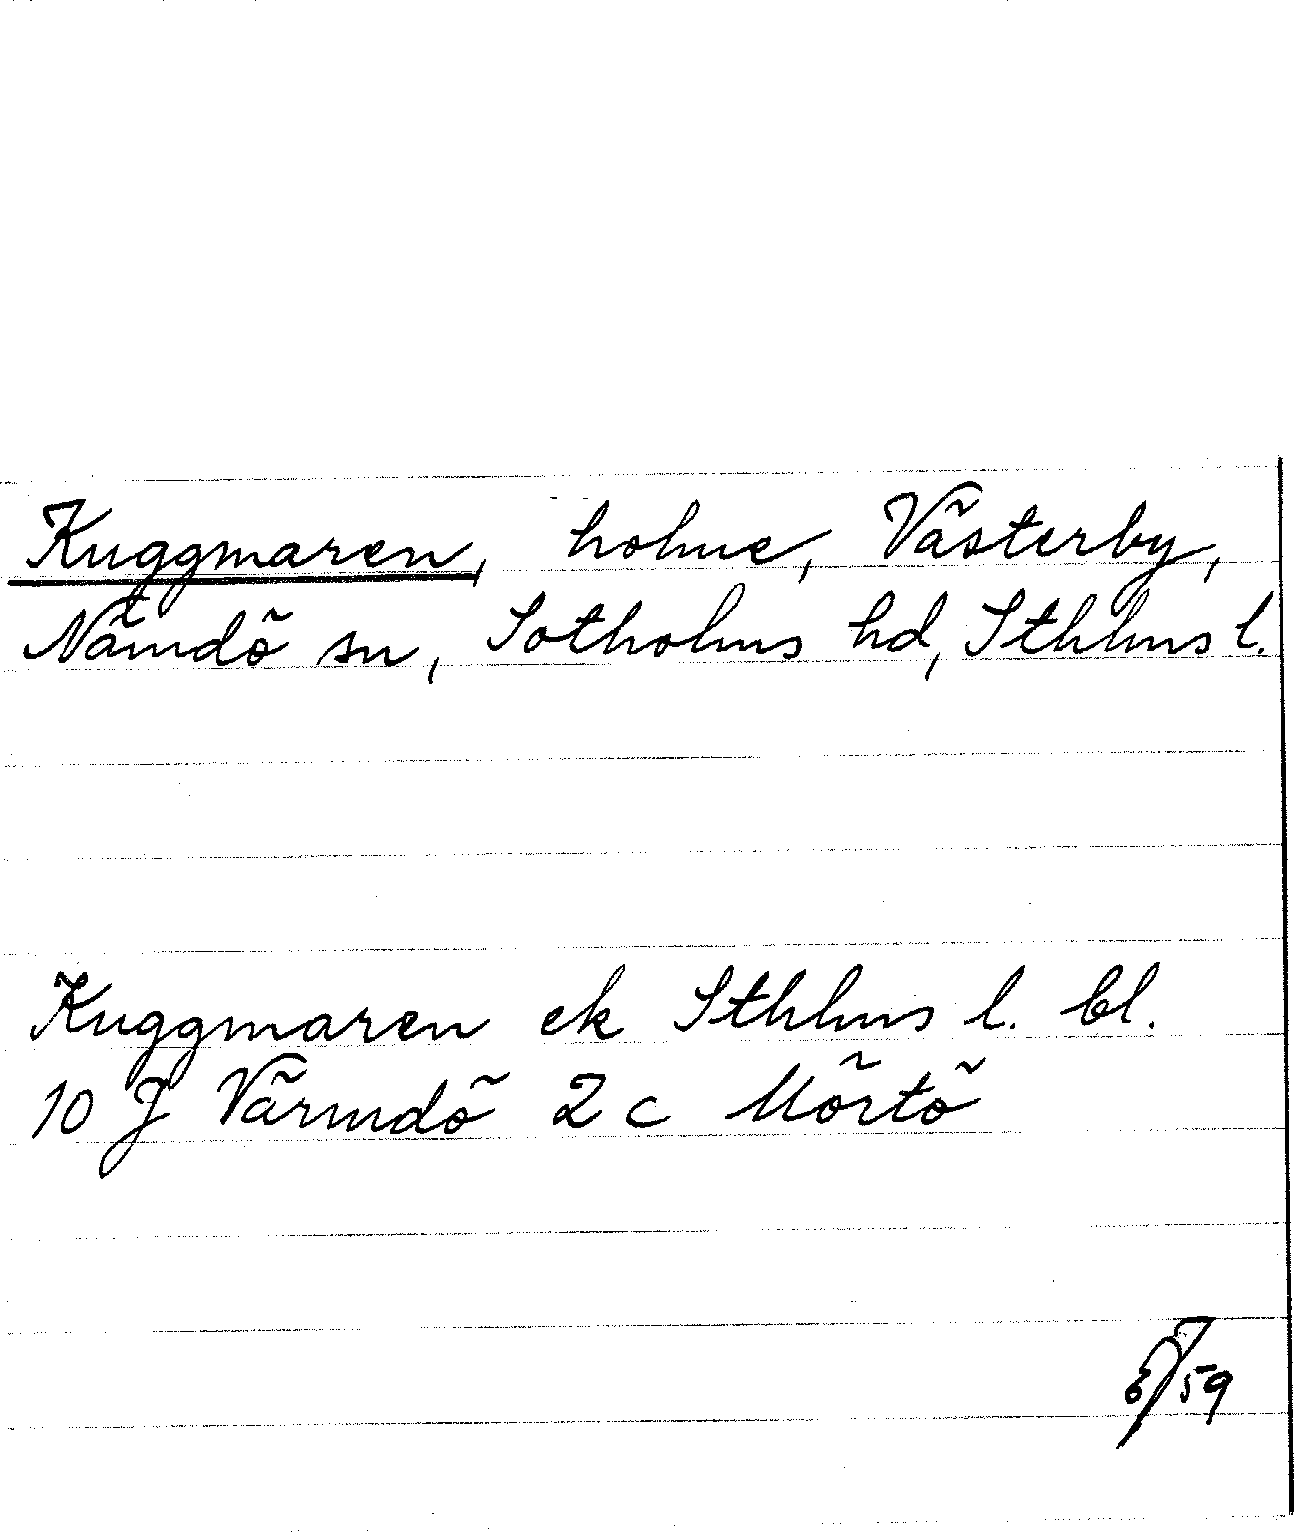 Kuggmaren, holme, Västerby,
Nämdö sn, Sotholms hd, Sthlms l.
Kuggmaren ek Sthlms l. bl.
10 J Värmdö 2 c Mörtö
/59